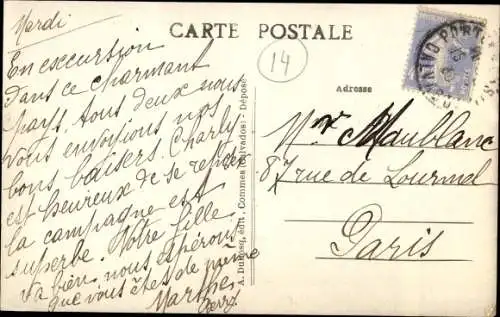 CARTE POSTALE
Mardi
En excursion
dans ce charmant
pays. tous deux nous
vous envoyons nos
bons baisers. Charly
est heureux de se reposer
la campagne est
superbe. Votre fille
va bien nous espérons
que vous êtes de même
Marthe
14
A. Dubosq, édit., Commes (Calvados) - Déposé
Adresse
Mr Maublanc
87 rue de Lourmel
Paris
PORT